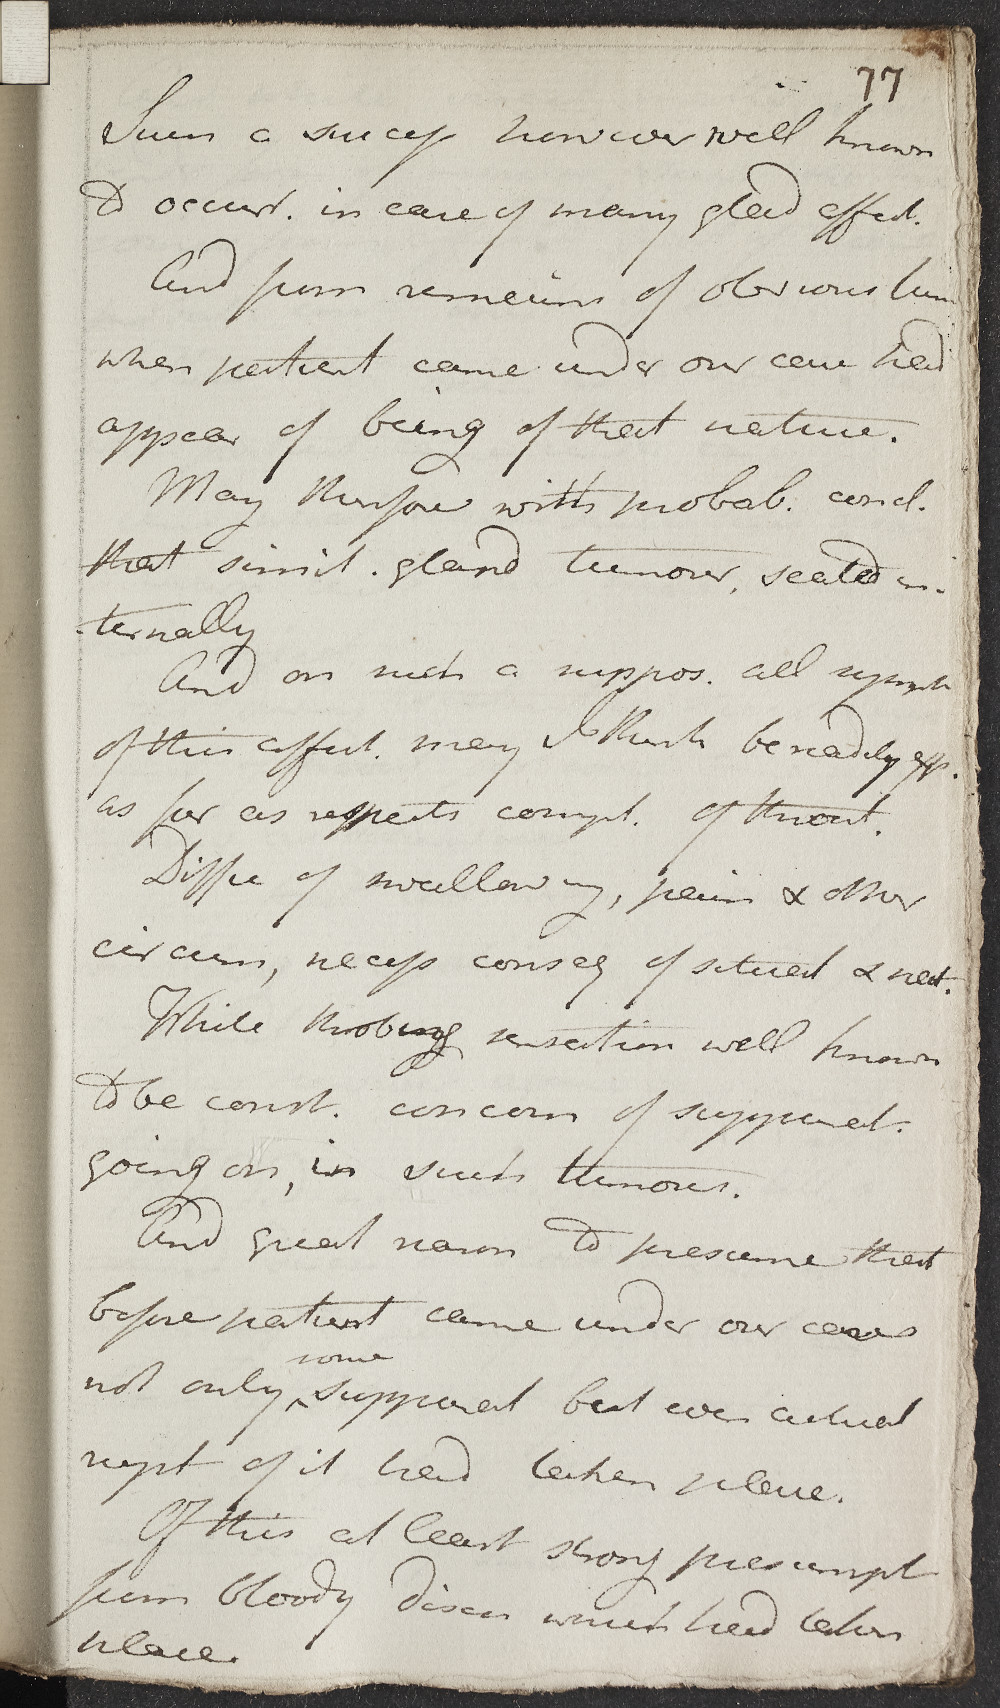 77
Such a success however well known
to occur. in case of many gland affect.
And from remains of obvious tum
when patient came under our care had
appear of being of that nature.
May therefore with probab. concl.
that simil. gland tumour, seated in-
-ternally
And on such a suppos. all sympt
of this affect. may I think be readily exp.
as far as respects compl. of throat.
Diffic of swallowing, pain & other
circum, necess conseq of situat & nat.
While throbing sensation well known
to be const. concom of suppurat.
going on, in such tumours.
And great reason to presume that
before patient came under our care
not only some suppurat but even actual
rupt of it had taken place.
Of this at least strong presumpt
from bloody disch which had taken
place.